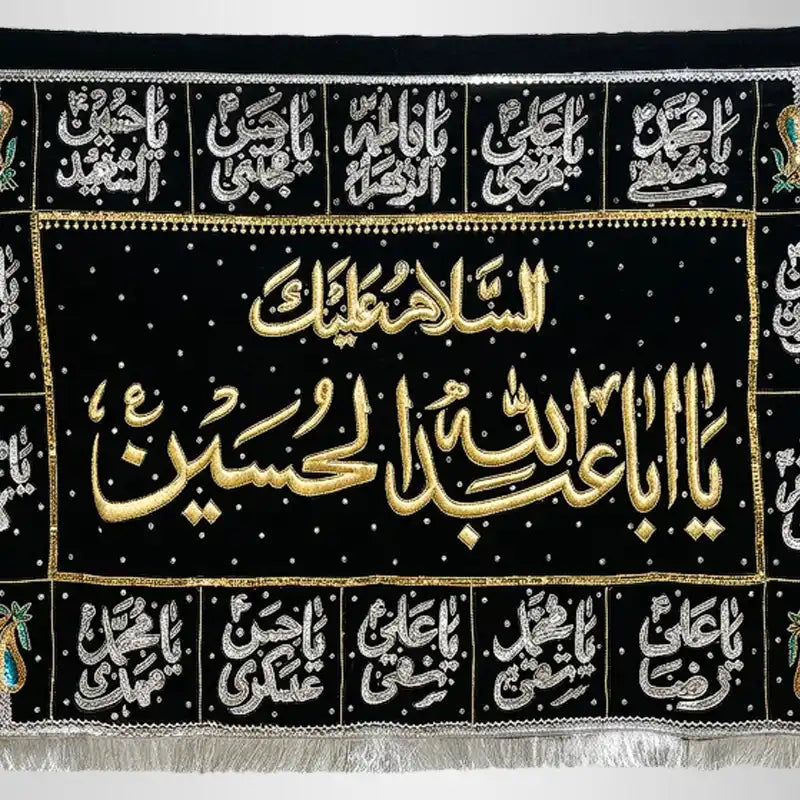 يا محمد مصطفى
يا علي مرتضى
يا فاطمة الزهراء
يا حسن مجتبى
يا حسين الشهيد
السَّلامُ عَلَيْكَ
يَا اَبا عَبْدَ اللّٰهِ الحُسَيْنِ ع
يا علي رضا
يا محمد تقي
يا علي نقي
يا حسن عسكري
يا محمد مهدي